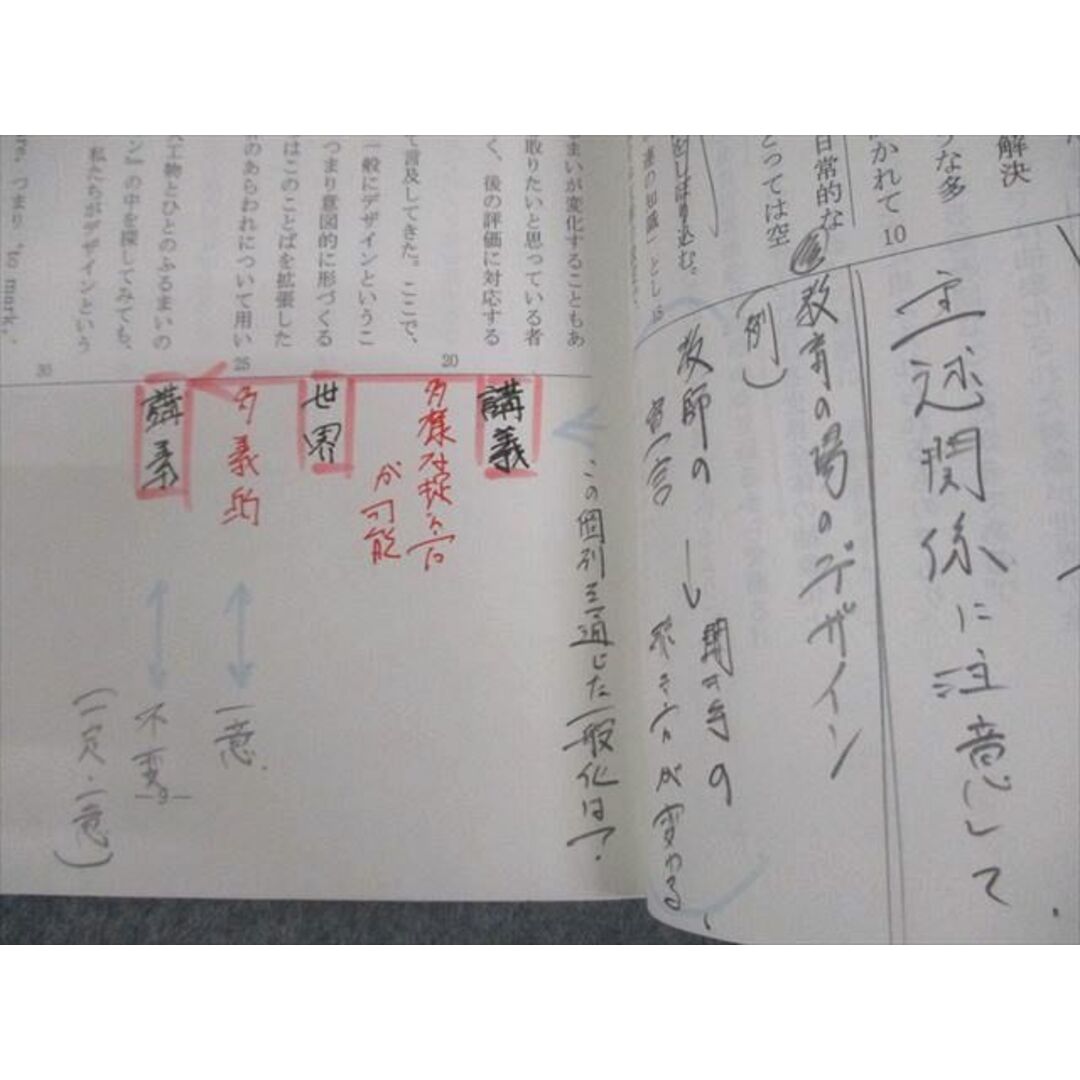 解決
うな多
かれて
10
日常的な
とっては空
をしぼり込む。
主述関係に注意して
教育の場のデザイン
(例)
教師の
第一言
→
聞き手の
聴き方が変わる、
15
まいが変化することもあ
取りたいと思っている者
く、後の評価に対応する
20
て言及してきた。ここで、
一般にデザインというこ
つまり意図的に形づくる
はこのことばを拡張した
のあらわれについて用い
25
工物とひとのふるまいの
ン』の中を探してみても、
私たちがデザインという
30
つまり "to mark,"
この個別を通じた一般化は?
講義
多様な捉え方
が可能
世界
多義的
一意.
講義
不変
(一定・一意)
-9-